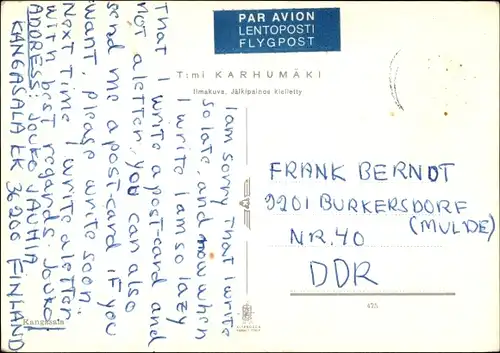 PAR AVION
LENTOPOSTI
FLYGPOST
T:mi KARHUMÄKI
Ilmakuva. Jälkipainos kielletty
I am sorry that I write
so late, and now when
I write I am so lazy
that I write a postcard and
not a letter. you can also
send me a post-card if you
want, please write soon.
Next time I write a letter
with best regards: Jouko!
ADDRESS: Jouko JAUHIA
KANGASALA LK 36200 FINLAND
FRANK BERNDT
9201 BURKERSDORF
(MULDE)
NR. 40
DDR
Kangasala
475